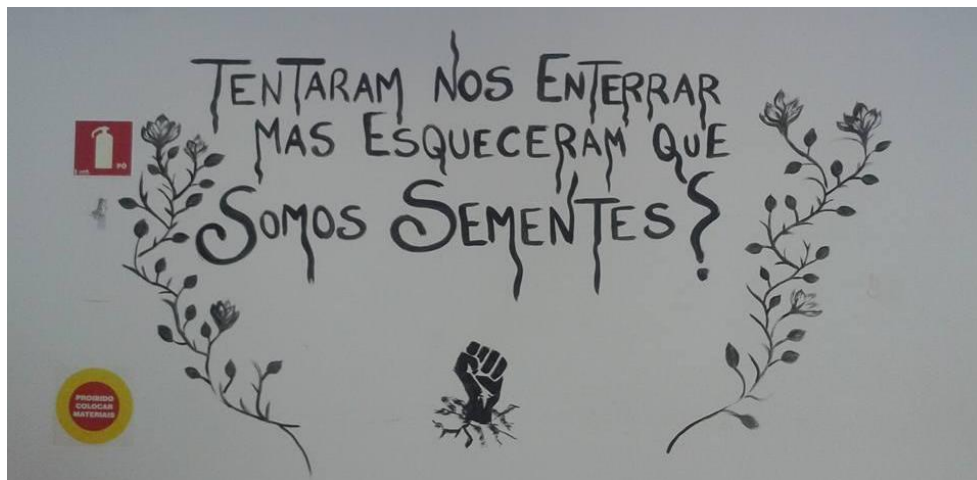 TENTARAM NOS ENTERRAR
MAS ESQUECERAM QUE
SOMOS SEMENTES?
PÓ
PROIBIDO
COLOCAR
MATERIAIS